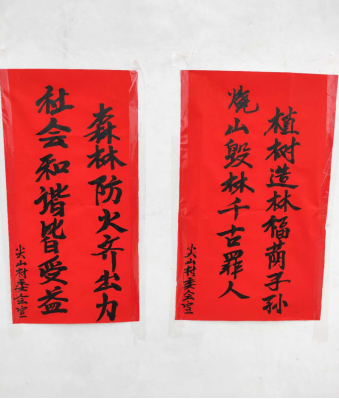 植树造林福荫子孙
烧山毁林千古罪人
尖山村委会宣
森林防火齐出力
社会和谐皆受益
尖山村委会宣